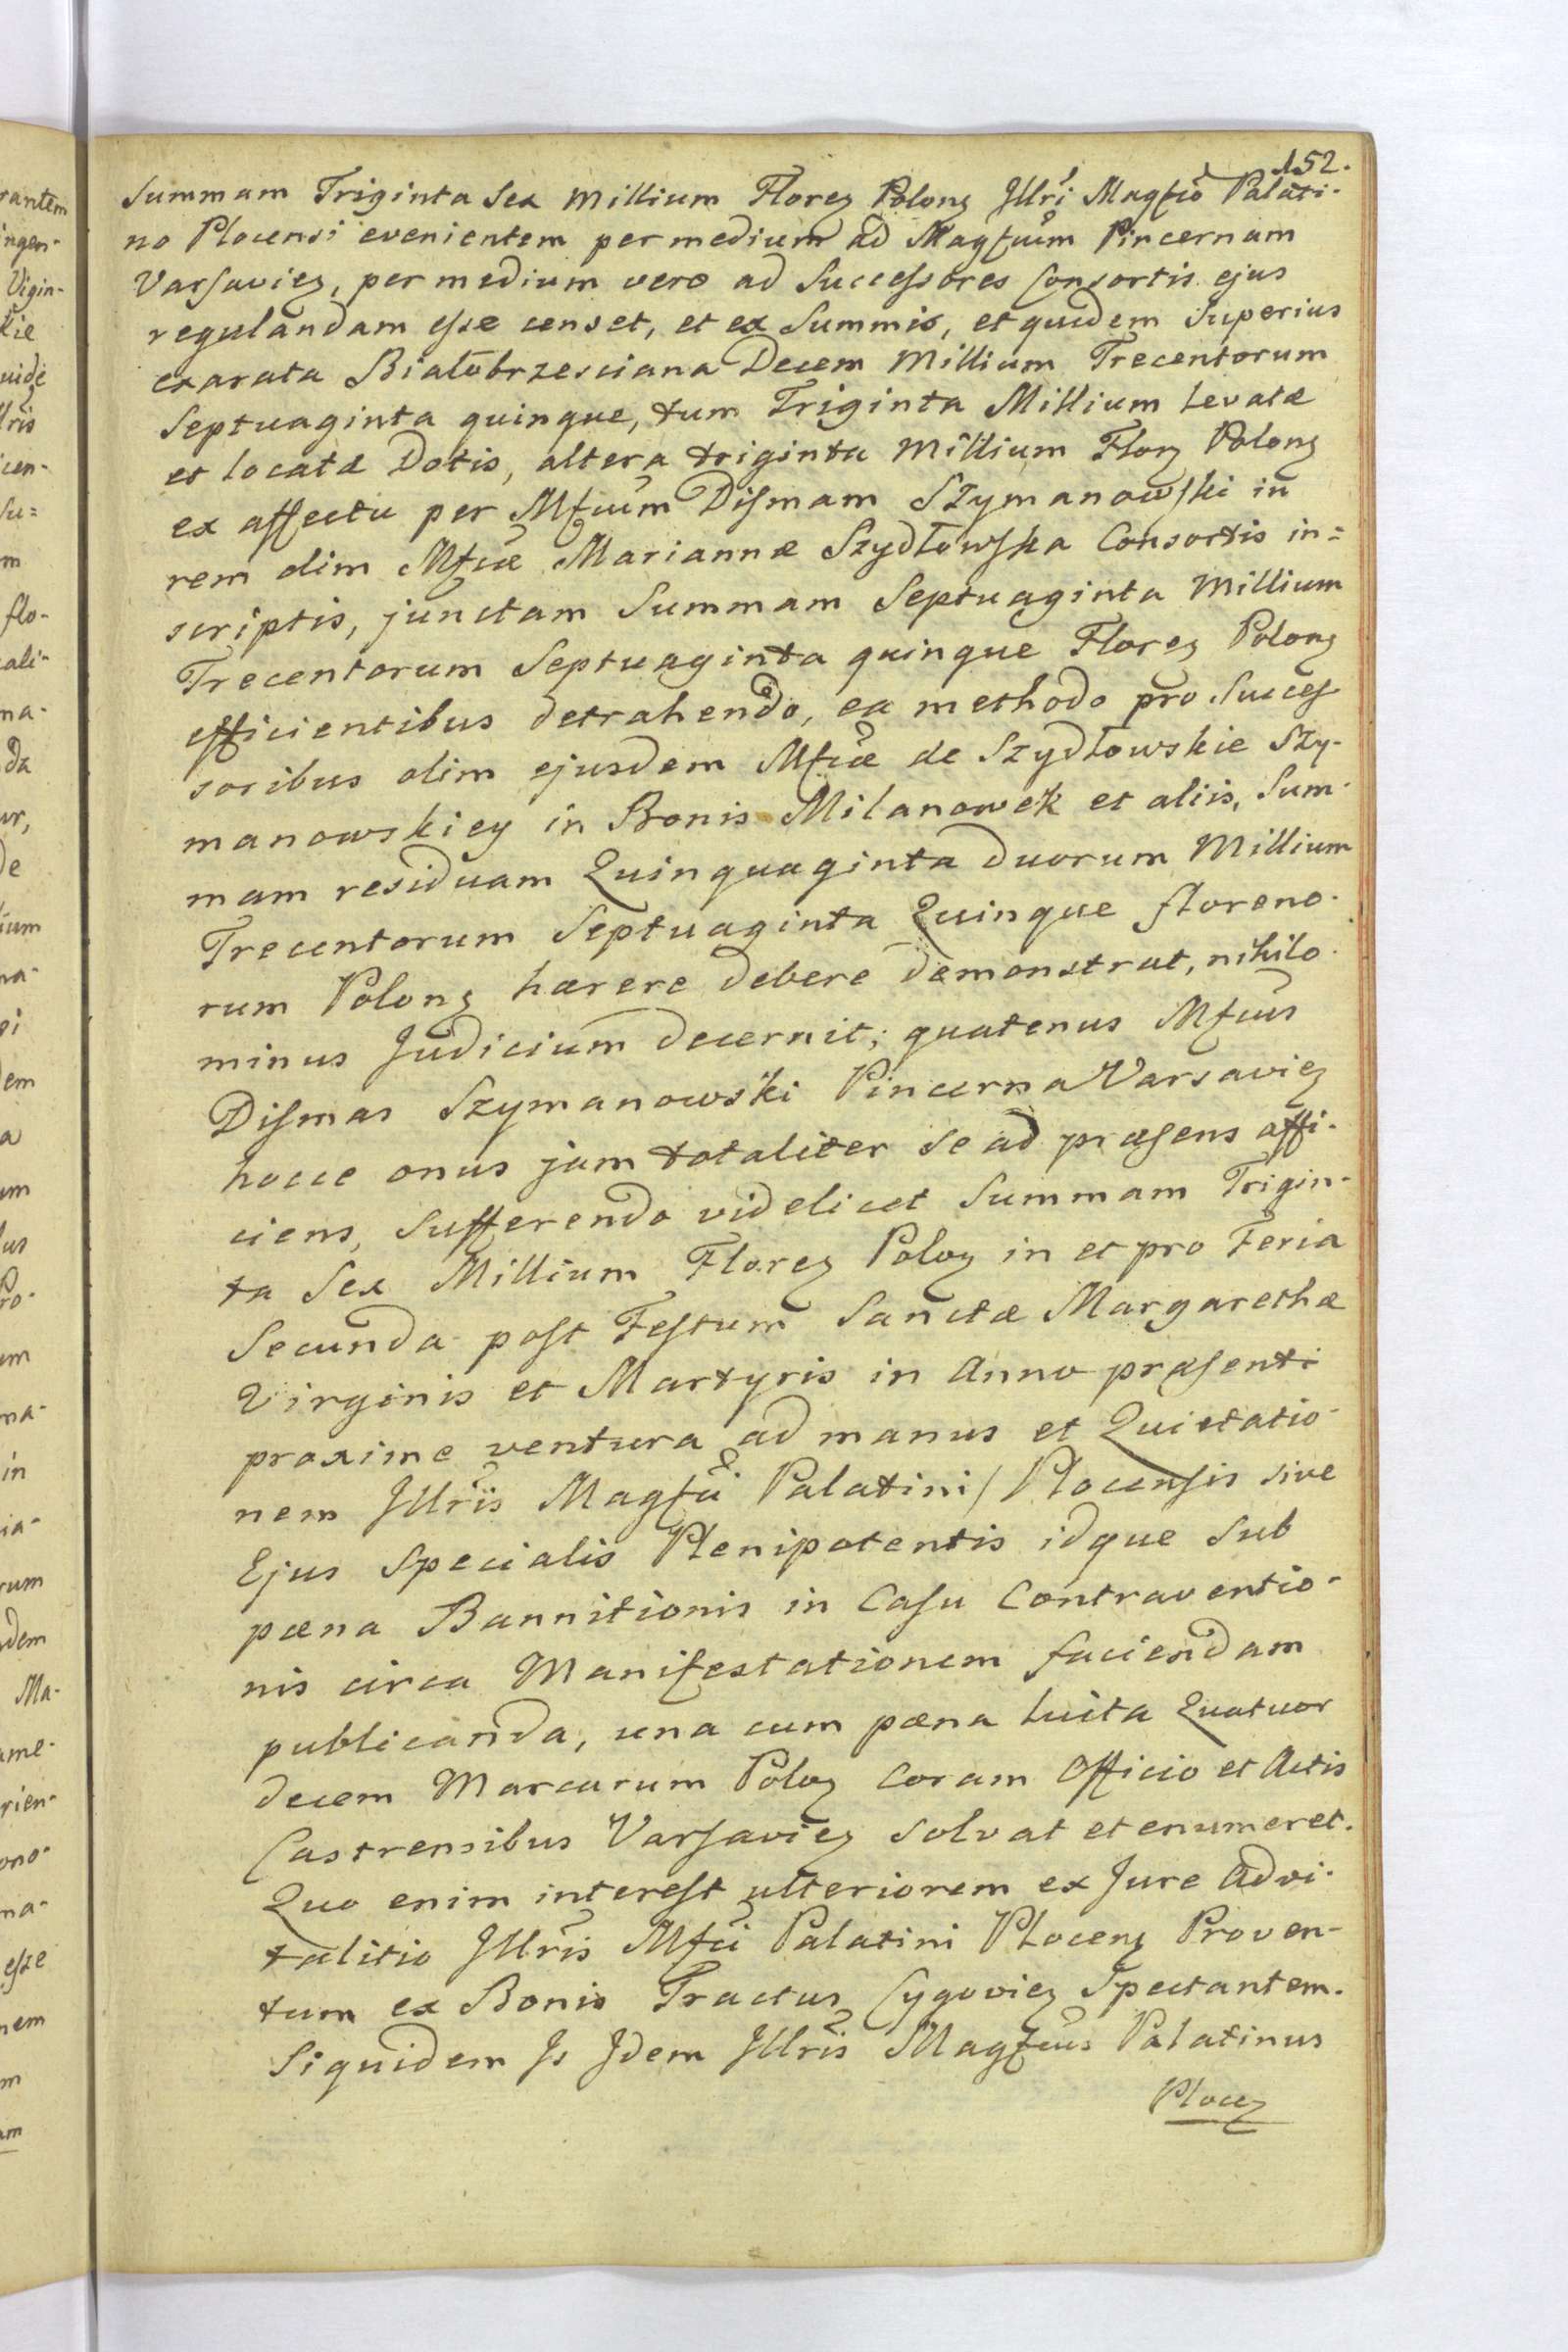 152.
Summam Triginta Sex Millium Floreꝫ Polonꝫ Jllri Magfco Palati-
no Plocensi evenientem per medium ad Magfcum Pincernam
Varsavieꝫ, per medium vero ad Successores Consortis ejus
regulandam esse censet, et ex Summis, et quidem Superius
exarata Białobrzesciana Decem Millium Trecentorum
Septuaginta quinque, tum Triginta Millium levatæ
et locatæ Dotis, altera triginta Millium Florꝫ Polonꝫ
ex affectu per Mfcum Dismam Szymanowski in
rem olim Mfcæ Mariannæ Szydłowska Consortis in=
scriptis, junctam Summam Septuaginta Millium
Trecentorum Septuaginta quinque Floreꝫ Polonꝫ
efficientibus detrahendo, ea methodo pro Succes-
soribus olim ejusdem Mfcæ de Szydłowskie Szy-
manowskiey in Bonis Milanowek et aliis, Sum-
mam residuam Quinquaginta duorum Millium
Trecentorum Septuaginta Quinque floreno-
rum Polonꝫ hærere debere demonstrat, nihilo-
minus Judicium decernit; quatenus Mfcus
Dismas Szymanowski Pincerna Varsavieꝫ
hocce onus jam totaliter se ad præsens affi-
ciens, Sufferendo videlicet Summam Trigin-
ta Sex Millium Floreꝫ Poloꝫ in et pro Feria
Secunda post Festum Sanctæ Margarethæ
Virginis et Martyris in Anno præsenti
proxime ventura ad manus et Quietatio-
nem Jllris Magfci Palatini / Plocensis sive
Ejus Specialis Plenipotentis idque Sub
pœna Bannitionis in Casu Contraventio-
nis circa Manifestationem faciendam
publicanda, una cum pœna luita Quatuor
decem Marcarum Poloꝫ Coram Officio et Actis
Castrensibus Varsavieꝫ solvat et enumeret.
Quo enim interest ulteriorem ex Jure Advi-
talitio Jllris Mfci Palatini Plocenꝫ Proven-
tum ex Bonis Tractus Cygovieꝫ Spectantem.
Siquidem Js Jdem Jllris Magfcus Palatinus
Plocꝫ